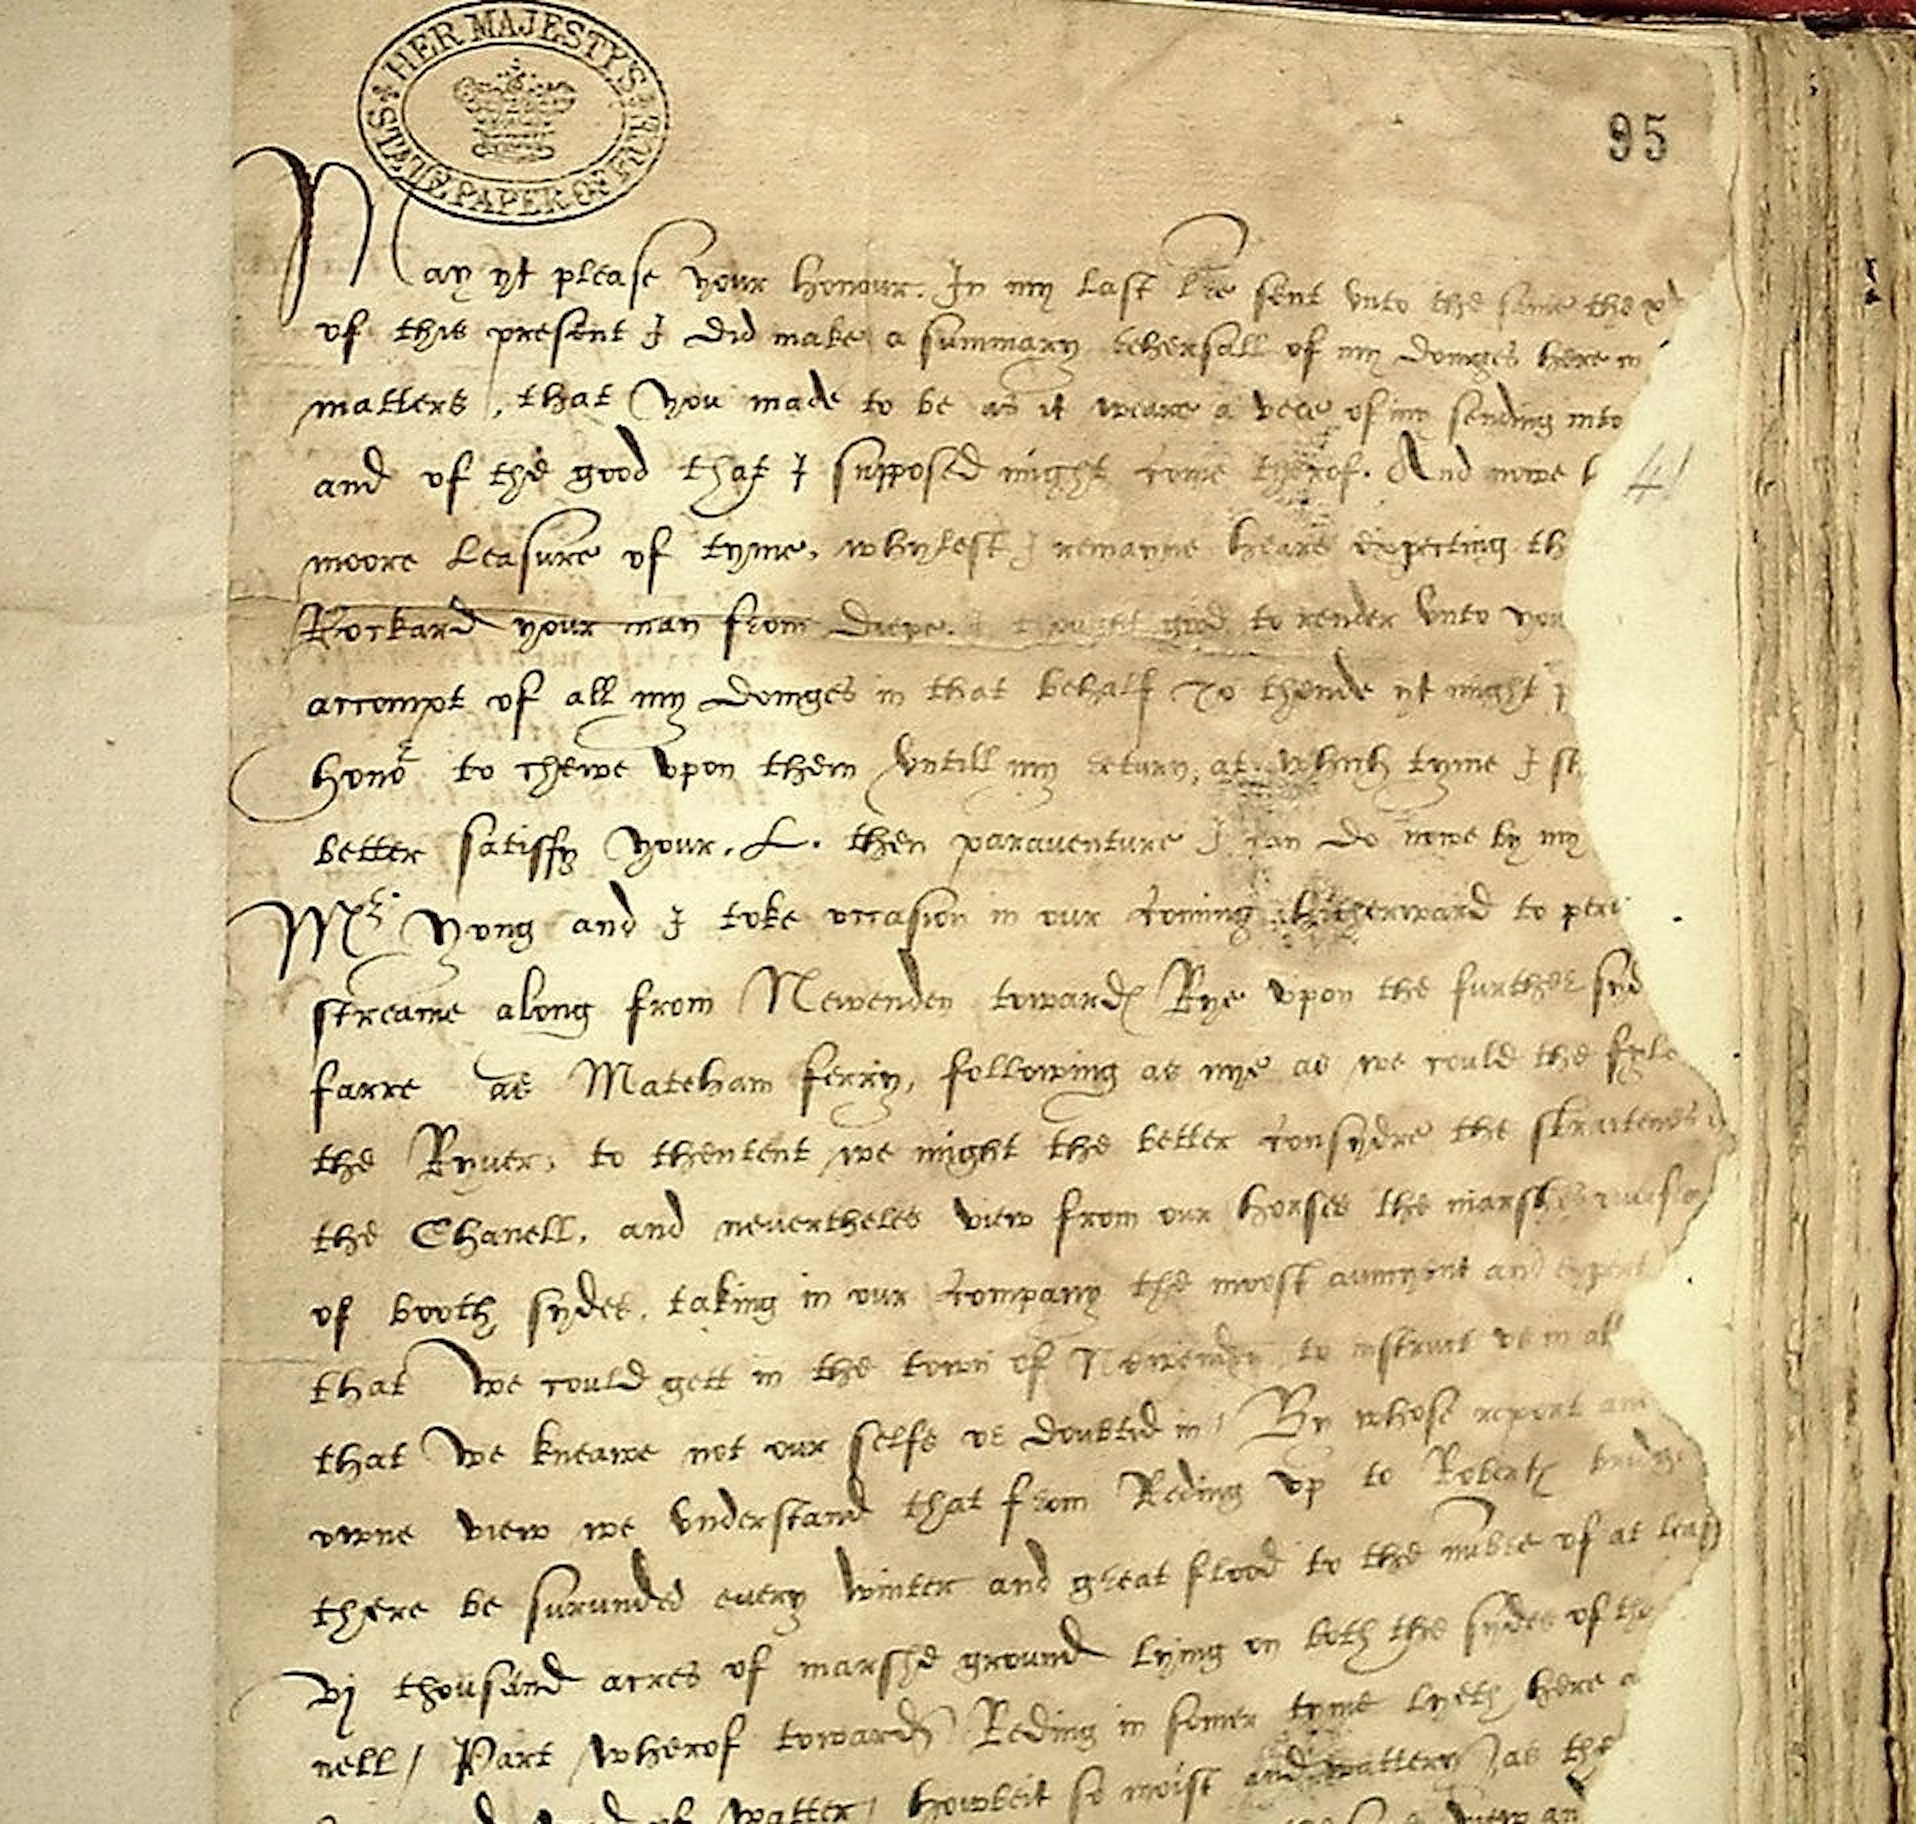 HER MAJESTY'S STATE PAPER OFFICE
95
May yt please your honour. In my last lre sent vnto the same the
of this present I did make a summary rehersall of my doinges here in
matters, that you made to be as it weare a of my sending into
and of the good that I supposed might come therof. And nowe
moore leasure of tyme, whylest I remayne heare expecting th
Rockard your man from Diepe. I thought good to render vnto you
accompt of all my doinges in that behalf To thende yt might p
honor to chewe vpon them vntill my return, at which tyme I s
better satisfy your. L. then paraventure I can do nowe by my
Mr Yong and I toke occasion in our coming hitherward to per
streame along from Newenden towards Rye vpon the further syd
farre as Mateham ferry, following as nye as we could the
the Ryver, to thentent we might the better consydre the straitenes
the Chanell, and nevertheles view from our horses the marshes
of booth sydes, taking in our company the moost auncyent and expert
that we could gett in the town of Newenden to instruct vs in all
that we knewe not our selfe or doubted in / By whose report and
owne view we vnderstand that from Reding vp to Roberts bridge
there be surunded every winter and great flood to the nubre of at least
vj thousand acres of marshe ground lying on both the sydes of the
nell / Part wherof towards Reding in somer tyme lyeth here a
of watter / howbeit so moist and wattery as the